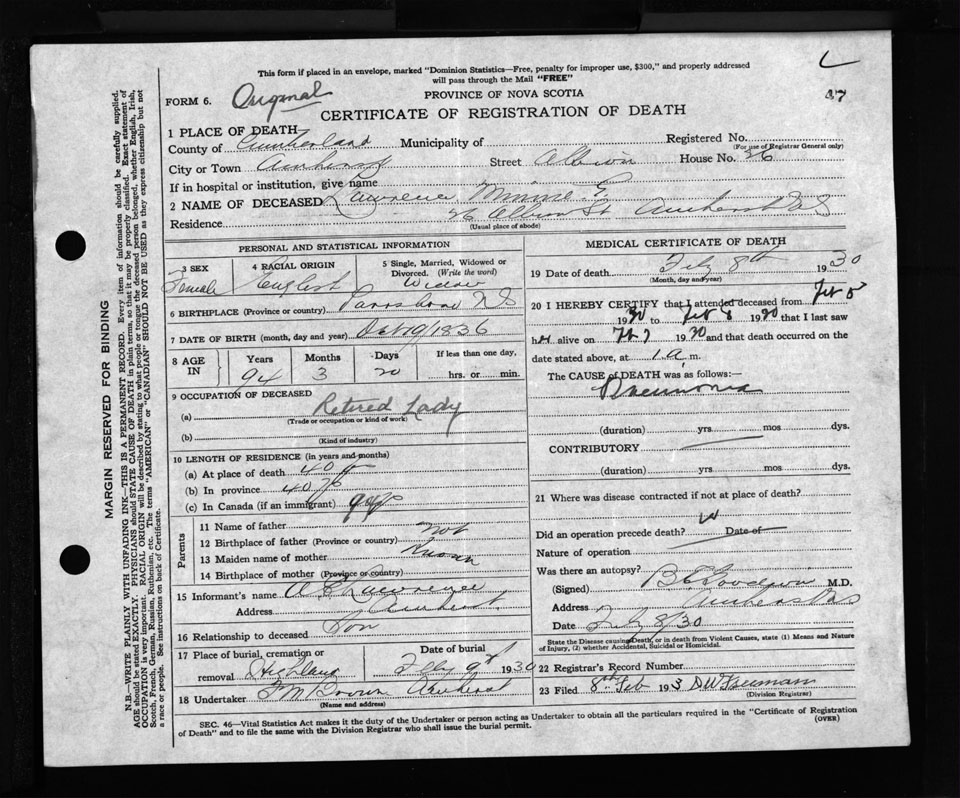 L
This form if placed in an envelope, marked "Dominion Statistics—Free, penalty for improper use, $300," and properly addressed
will pass through the Mail "FREE"
PROVINCE OF NOVA SCOTIA
37
FORM 6. Original
CERTIFICATE OF REGISTRATION OF DEATH
1 PLACE OF DEATH
County of Cumberland Municipality of Registered No.
(For use of Registrar General only)
City or Town Amherst Street Albion House No. 26
If in hospital or institution, give name
2 NAME OF DECEASED Lawrence Minnie E.
Residence 26 Albion St Amherst N.S.
(Usual place of abode)
PERSONAL AND STATISTICAL INFORMATION
3 SEX
Female
4 RACIAL ORIGIN
English
5 Single, Married, Widowed or
Divorced. (Write the word)
Widow
6 BIRTHPLACE (Province or country) Parrsboro N S
7 DATE OF BIRTH (month, day and year) Oct 19/1836
8 AGE IN
Years Months Days If less than one day,
94 3 20 hrs. or min.
9 OCCUPATION OF DECEASED
(a) Retired Lady
(Trade or occupation or kind of work)
(b)
(Kind of industry)
10 LENGTH OF RESIDENCE (in years and months)
(a) At place of death 40
(b) In province 40
(c) In Canada (if an immigrant)
Parents
11 Name of father
12 Birthplace of father (Province or country) Not
13 Maiden name of mother Known
14 Birthplace of mother (Province or country)
15 Informant's name Lawrence
Address Amherst
16 Relationship to deceased Son
17 Place of burial, cremation or
removal Highland
Date of burial
Feby 9th 1930
18 Undertaker F M Brown Amherst
(Name and address)
MEDICAL CERTIFICATE OF DEATH
19 Date of death Feby 8th 1930
(Month, day and year)
20 I HEREBY CERTIFY that I attended deceased from Feb 5
1930 to Feb 8 1930 that I last saw
her alive on Feb 7 1930 and that death occurred on the
date stated above, at 1 a m.
The CAUSE of DEATH was as follows:—
Pneumonia
(duration) yrs mos dys.
CONTRIBUTORY
(duration) yrs. mos. dys.
21 Where was disease contracted if not at place of death?
Did an operation precede death? Date of
Nature of operation
Was there an autopsy?
(Signed) Goodwin M.D.
Address Amherst N S
Date Feby 8/30
State the Disease causing Death, or in death from Violent Causes, state (1) Means and Nature
of Injury, (2) whether Accidental, Suicidal or Homicidal.
22 Registrar's Record Number
23 Filed 8th Feb 193 D W Freeman
(Division Registrar)
SEC. 46—Vital Statistics Act makes it the duty of the Undertaker or person acting as Undertaker to obtain all the particulars required in the "Certificate of Registration
of Death" and to file the same with the Division Registrar who shall issue the burial permit.
(OVER)
MARGIN RESERVED FOR BINDING
N.B.—WRITE PLAINLY WITH UNFADING INK—THIS IS A PERMANENT RECORD. Every item of information should be carefully supplied.
AGE should be stated EXACTLY. PHYSICIANS should STATE CAUSE OF DEATH in plain terms, so that it may be properly classified. Exact statement of
OCCUPATION is very important. RACIAL ORIGIN will be described by stating to what people or tongue the deceased person belonged, whether English, Irish,
Scotch, French, German, Russian, Ruthenian, etc. The terms "AMERICAN" or "CANADIAN" SHOULD NOT BE USED as they express citizenship but not
a race or people. See instructions on back of Certificate.